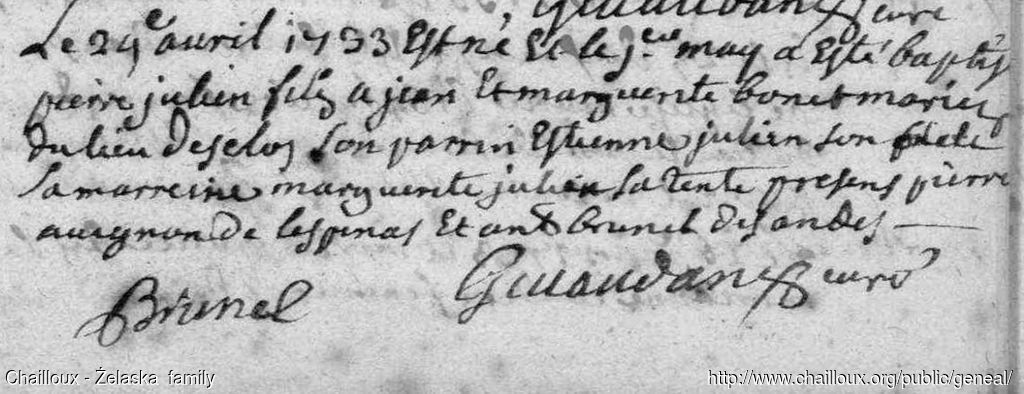 curé
Le 29e avril 1733 Est né Et le jer may a Esté baptisé
pierre julien fils a jean Et marguerite bonet mariés
du lieu deselos son parrin Estienne julien son frere
sa marreine marguerite julien sa tente presens pierre
auignon de lespinas Et ant brunel des andes
Brunel curé
Chailloux - Żelaska family
http://www.chailloux.org/public/geneal/